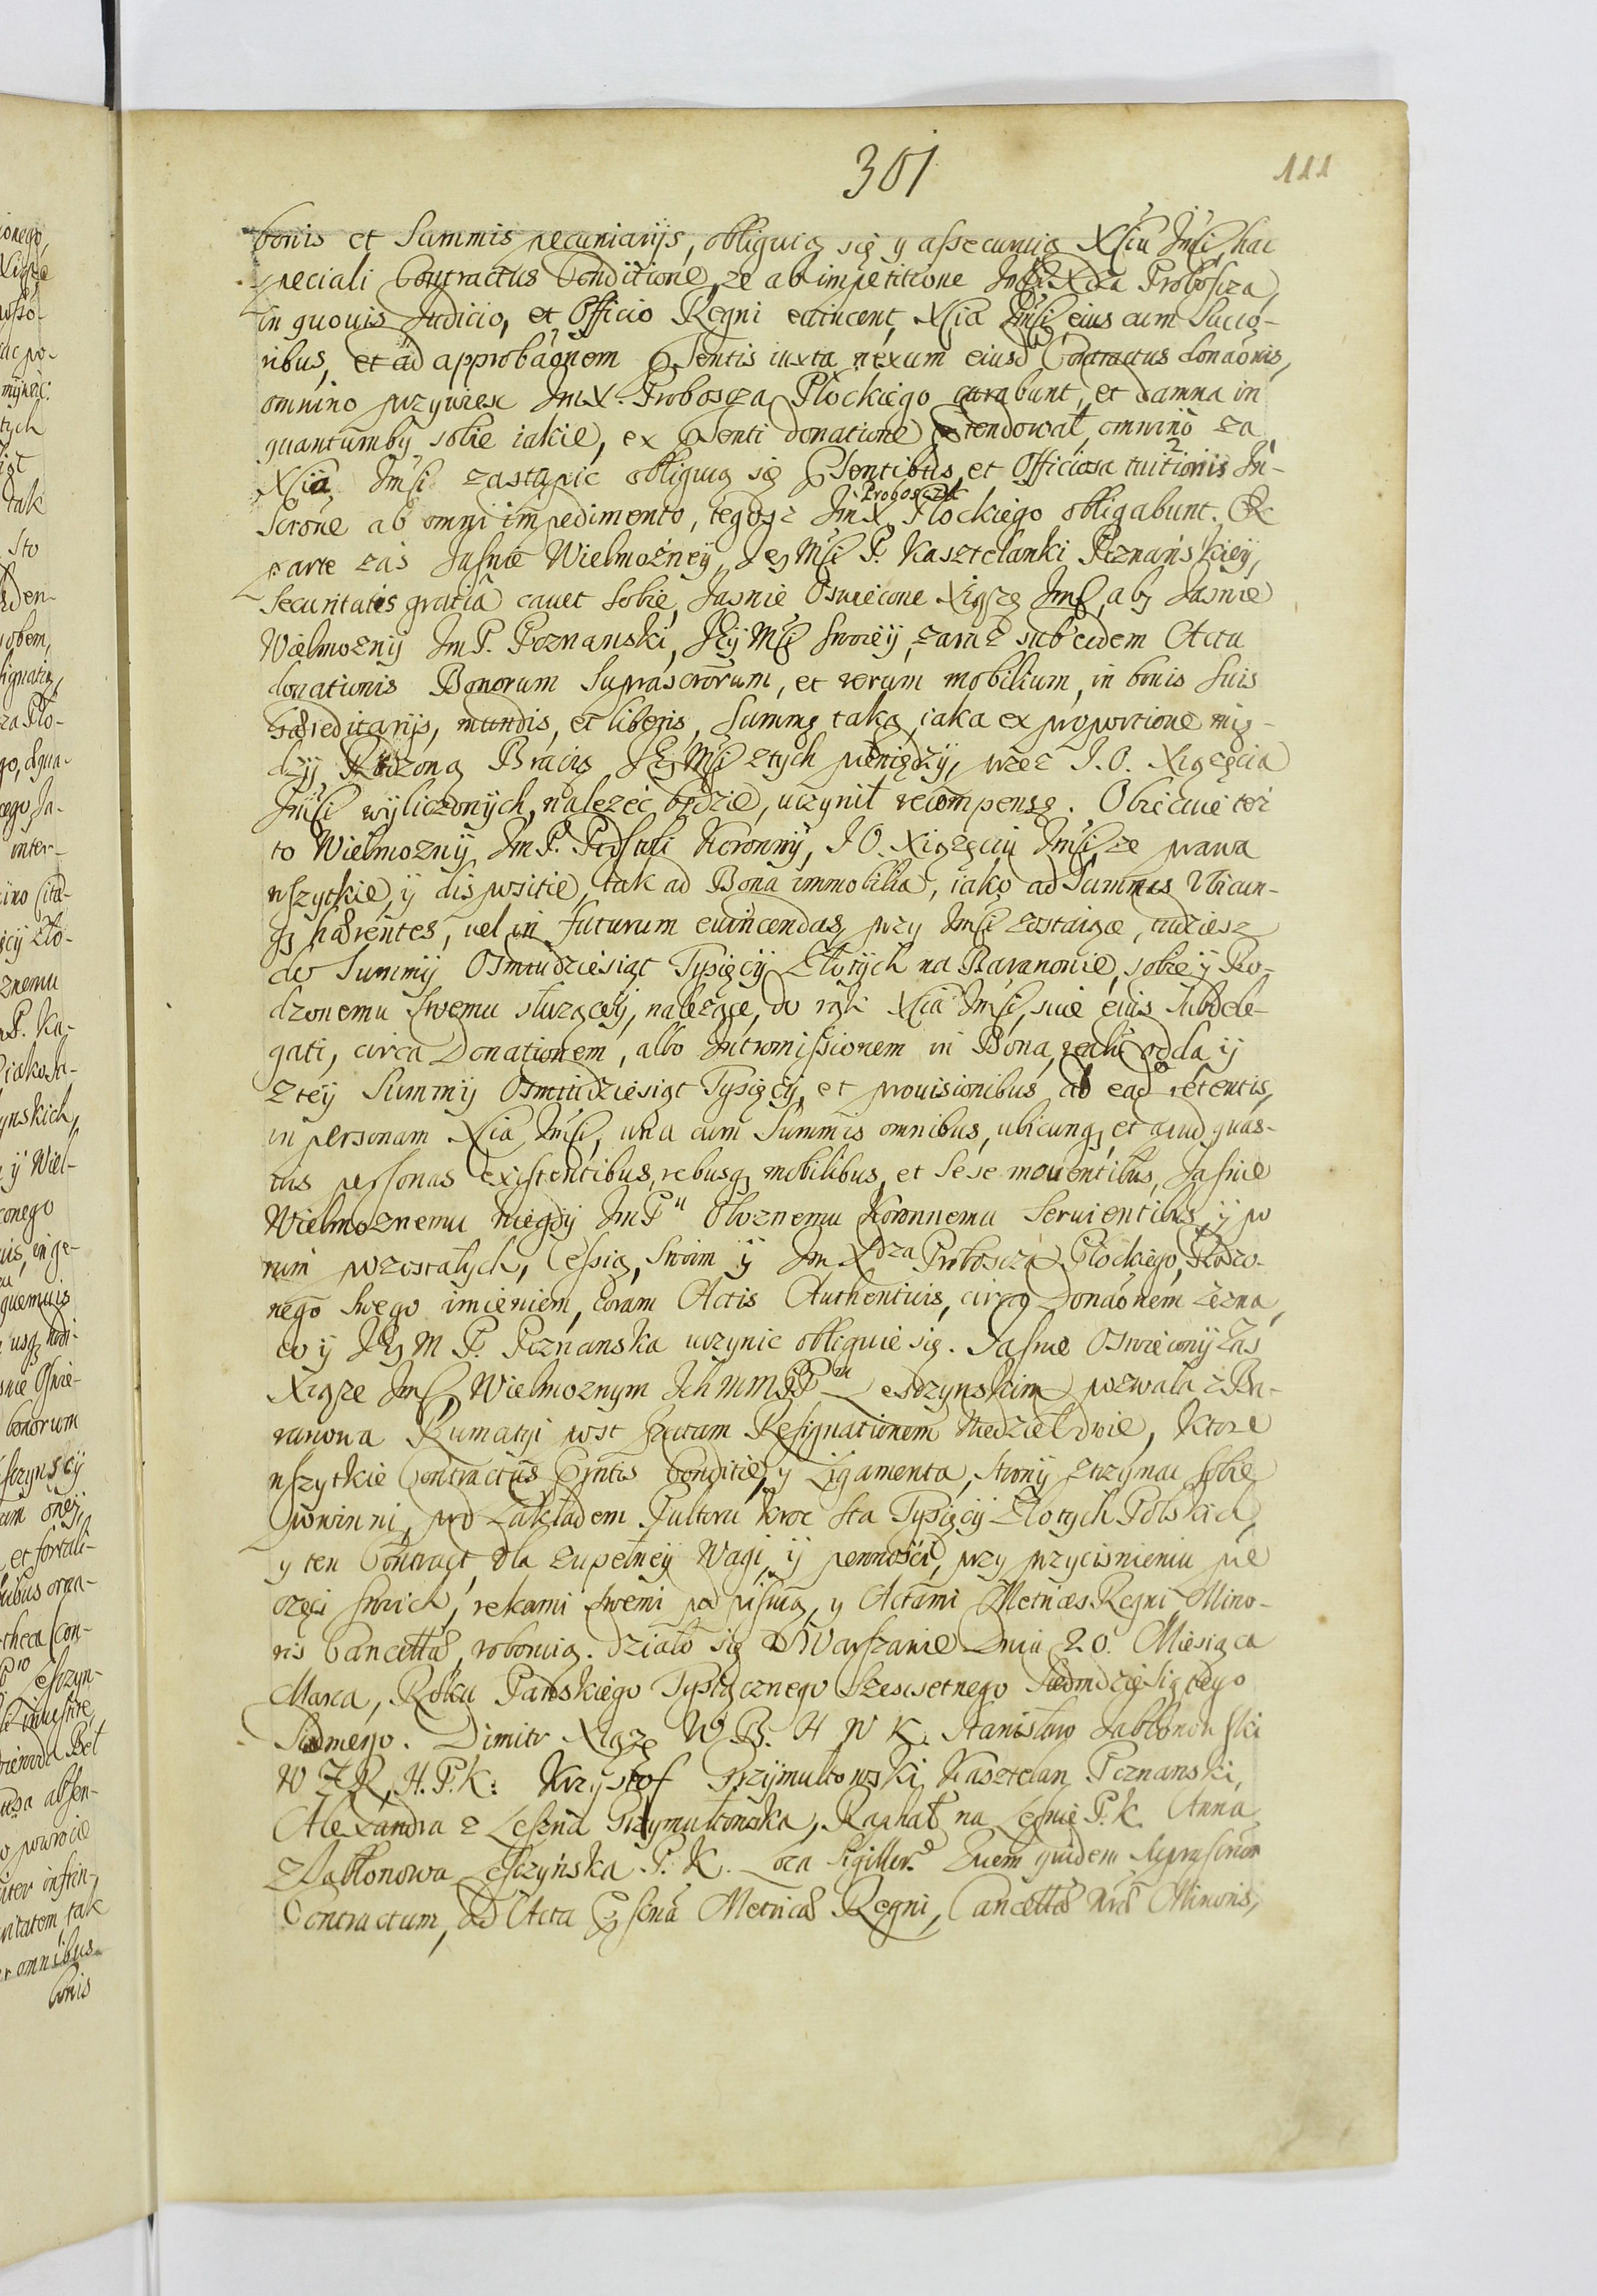 301
111
bonis et Summis pecuniarijs, obliguią się y assecuruią Xſciu Jmſci, hac
speciali Contractus Conditione, że ab impetitione Jmści Xdza Proboſzcza,
in quouis Judicio, et Officio Regni euincent, Xſcia Jmſci eius cum Succo-
ribus, et ad approbaōnem Pñtentis iuxta nexum eiusd Contractus donaōnis,
omnino przywiesc Jm X. Proboscza Płockiego curabunt, et damna in
quantumby sobie iakie, ex Psenti donatione prætendował, omnino za
Xſcia Jmſci zastąpic obliguią się Psentibus, et Officiosa tuitionis In-
Scrōne ab omni impedimento, tegosz Jm X. Proboscza Płockiego obligabunt. Ex
parte zaś Jaſnie Wielmożneÿ, Jeÿ Mſci P. Kasztelanki Poznańskieÿ,
Securitatis gratiâ cauet Sobie, Jasnie Oswiecone Xiąże Jmſc, abÿ Jasnie
Wielmoznÿ Jm P. Poznanski, Jeÿ Mſci Swoieÿ, zaraz sub eodem Actu
donationis Bonorum Suprascrorum, et rerum mobilium, in bonis suis
hæreditarijs, mundis, et liberis, Summę taką, iaka ex proportione mię-
dzÿ Rodzoną Bracią Jeÿ Mſci z tych pieniędzÿ, przez J. O. Xiązęcia
Jmſci wÿliczonÿch, należeć będzie, uczynił recompensę. Obiecuie też
to Wielmoznÿ Jm P. Podstoli Koronnÿ, J O. Xiązęciu Jmſci, ze prawa
wszytkie, ÿ dispositie, tak ad Bona immobilia, iako ad Summas Vbicun-
qȝ hærentes, uel in futurum euincendas, przy Jmſci zostaiące, tudziesz
do Summÿ Osmiudziesiąt Tysięcÿ Złotÿch na Baranowie, sobie ÿ Ro-
dzonemu Swemu służąceÿ, należące, do rąk Xſcia Jmſci, siue eius Subdele-
gati, circa Donationem, albo Intromissionem in Bona, realr odda ÿ
z teÿ Summÿ Osmiudziesiąt Tysięcÿ, et prouisionibus ab eadē retentis,
in personam Xſcia Jmſci, una cum Summis omnibus, ubicunqȝ et apud quas-
uis personas existentibus, rebusqȝ mobilibus, et Sese mouentibus, Jaſnie
Wielmoznemu niegdÿ Jm P<sup>u</sup> Oboznemu Koronnemu Seruientibus, ÿ po
nim pozostałych, Cessią, Swoim ÿ Jm Xdza Proboscza Płockiego, Rodzo-
nego Swego imieniem, Coram Actis Authenticis, circa Donaōnem zezna,
co ÿ Jeÿ M P. Poznanska uczynic obliguie się. Jaſnie Oswieconÿ zas
Xiąze Jmſc, Wielmoznym Jch MM PP<sup>m</sup> Lesczynskim pozwala z Ba-
ranowa Rumatÿi post factam Resignationem Niedziel dwie, Ktore
wszytkie Contractus Pñtis Conditie, y Ligamenta, Stronÿ ztrzymac sobie
powinni, pod zakładem Pułtora Kroc Sta Tysięcÿ Złotych Polskich,
y ten Contract, dla zupełneÿ Wagi, ÿ pewności, przy przyciśnieniu pie
częci swoich, rekami swemi podpisuią, y Actami Metrices Regni Mino-
ris Cancellæ, roboruią. Działo się w Warszawie Dnia 20. Miesiąca
Marca, Roku Pańskiego Tysiącznego Szescsetnego Siedmdziesiątego
Siodmego. Dimitr Xiąże W. B. H W K. Stanisław Jabłonowski
W Z R, H. P. K: Krzysztof Przÿmułtowski Kasztelan Poznanski,
Alexandra z Leszna Przymułtowska, Raphał na Lesnie P. K. Anna
z Jabłonowa Lesczyńska P. K. Loca Sigillor. Quem quidem Suprascrm
Contractum, ad Acta Pñsena Metricæ Regni, Cancellæ Nræ Minoris,